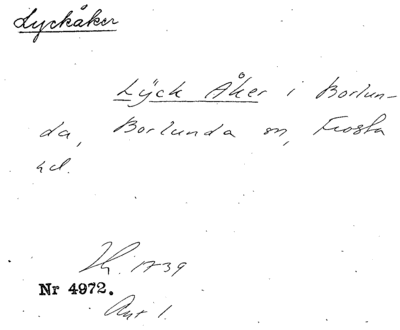 Lyckåker
Lÿck Åker i Borlun-
da, Borlunda sn, Frosta
hd.
1739
Nr 4972.
Akt 1.